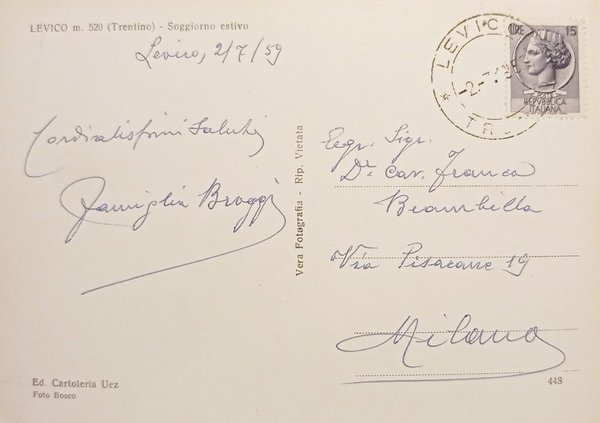 LEVICO m. 520 (Trentino) - Soggiorno estivo
Levico, 2/7/59
Cordialissimi Saluti
Famiglia Broggi
Vera Fotografia - Rip. Vietata
LEVICO
-2-7
TR
LIRE 15
REPVBBLICA
ITALIANA
Egr. Sigr.
Dr. Cav. Franco
Brambilla
Via Pisacane 19
Milano
Ed. Cartoleria Uez
Foto Bosco
448